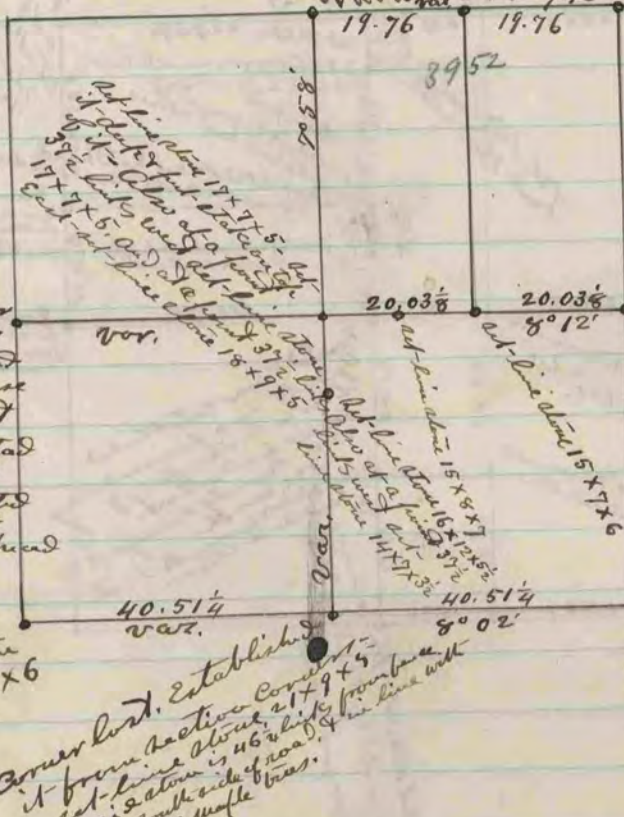 19.76 19.76
3952
Set-line stone 17x7x5- set
it deep & put stake on top
of it- Also at a point
37½ links west set-line stone
17x7x5. and at a point 37½ links
East-set-line stone 18x9x5
20.03⅛ 20.03⅛
8° 12'
var.
set-line stone 15x8x7
set-line stone 15x7x6
Set-line stone 16x12x5½
Also at a point 37½
links west set-
line stone 14x7x3½
var.
40.51¼ 40.51¼
var. 8° 02'
x6
Corner lost. Established
it from section corners-
set-line stone 21x9x5
stone is 46½ links from fence
south side of road, & in line with
maple trees.